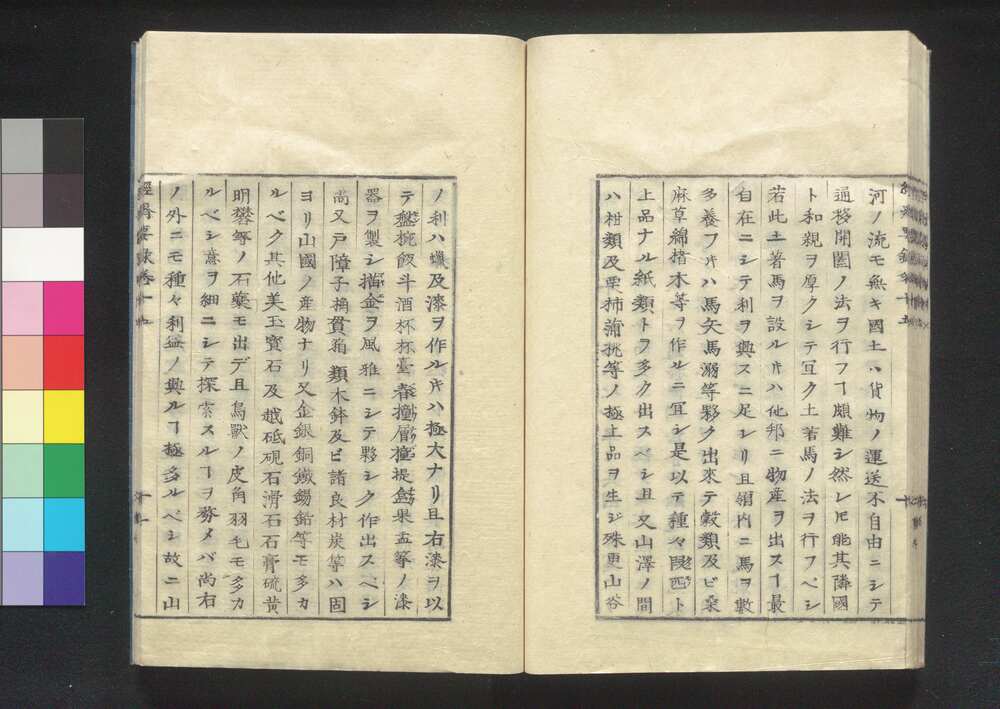 河ノ流モ無キ國土ハ貨物ノ運送不自由ニシテ
通移開闔ノ法ヲ行フヿ頗難シ然レ𪜈能其隣國
ト和親ヲ厚クシテ互ク土着馬ノ法ヲ行フベシ
若此土著馬ヲ設ル片ハ他邦ニ物産ヲ出スヿ最
自在ニシテ利ヲ興スニ足レリ且領内ニ馬ヲ數
多養フ片ハ馬矢馬溺等夥夕出來テ穀類及ビ桑
麻草綿楮木等ヲ作ルニ宜シ是以テ種々ト
上品ナル紙類トヲ多ク出スベシ且又山澤ノ間
ハ柑類及栗柿蒲桃等ノ極上品ヲ生ジ殊更山谷
ノ利ハ蠟及漆ヲ作ル片ハ極大ナリ且右漆ヲ以
テ盤椀飯斗酒杯杯臺提盒果盂等ノ漆
器ヲ製シ描金ヲ風雅ニシテ夥シク作出スベシ
尚又戸障子桶貫箱類木鉢及ビ諸良材炭等ハ固
ヨリ山國ノ産物ナリ又金銀銅鐵錫鉛等モ多カ
ルベク其他美玉寳石及越砥硯石滑石石膏硫黄
明礬等ノ石藥モ出デ且鳥獸ノ皮角羽毛モ多カ
ルベシ意ヲ細ニシテ探索スルヿヲ務メバ尚右
ノ外ニモ種々利益ノ興ルヿ極多ルベシ故ニ山